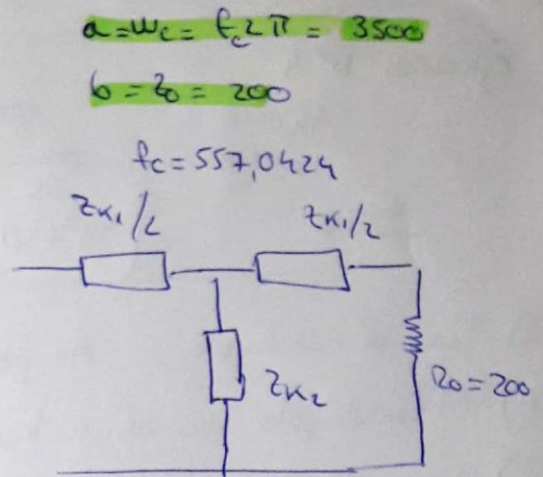 a = ωc = fc 2 π = 3500
b = z0 = 200
fc = 557,0424
ZK1/2 ZK1/2
ZK2 R0 = 200